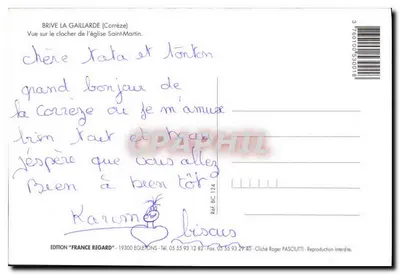 BRIVE LA GAILLARDE (Corrèze)
Vue sur le clocher de l'église Saint-Martin.
3760100530018
chère tata et tonton
grand bonjau de
la Corrèze ou je m'amuse
bien tout et
j'espère que vous allez
Bien à bien tôt
Karim
bisous
Réf: BC 174
EDITION "FRANCE REGARD" - 19300 EGLETONS - Tél. 05 55 93 12 82 - Fax 05 55 93 29 40 - Cliché Roger PASCIUTTI - Reproduction interdite.